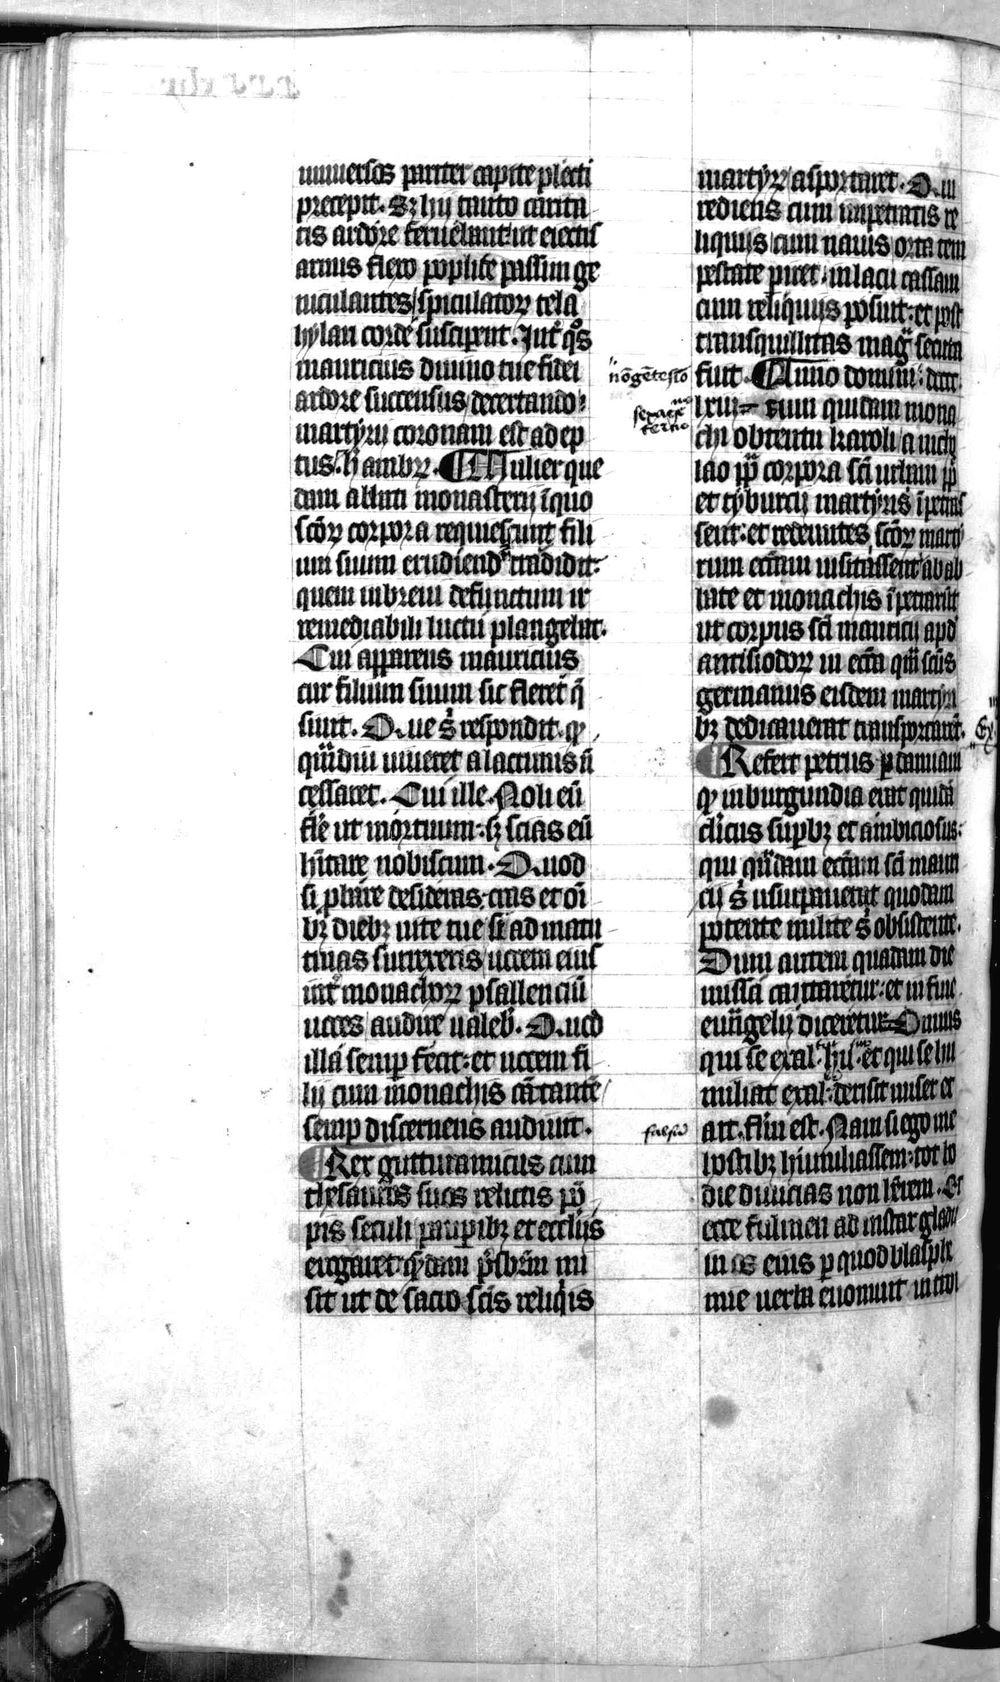 uniuersos pariter capite plecti
precepit. Sꝫ hii tanto carita
tis ardore feruebant ut eiectis
armis flexo poplite passim ge
niculantes spiculatorꝝ tela
hylari corde susciperent. Int͛ q̊s
mauricius diuino tue fidei
ardore succensus decertando
martyrii coronam est adep
tus. h̄ ambrꝫ. Mulier que
dam abbati monasterij ī quo
sc̄oꝝ corpora requiescunt fili
um suum erudiend᷒ tradidit:
quem in breui defunctum ir
remediabili luctu plangebat.
Cui apparens mauricius
cur filium suum sic fleret q̄
siuit. Que ꝯ̄ respondit. ꝙ
quādiu uiueret a lacrimis n̄
cessaret. Cui ille. Noli eū
fle͛ ut mortuum: sꝫ scias eū
hītare nobiscum. Quod
si ꝓbare desideras: cras et oī
bꝫ diebꝫ uite tue si ad matu
tinas surrexeris uocem eius
int͛ monachoꝝ psallenciū
uoces audire ualeb᷒. Quod
illa semꝑ fecit: et uocem fi
lij cum monachis cātante
semꝑ discernens audiuit.
Rex gutturamicus cum
thesauros suos relictis pō
pis seculi pauꝑibꝫ et ecclijs
erogaret: q̄dam p̄sbr̄m mi
sit ut de sacro sc̄is reliq̇is
martyrꝝ asportaret. Qui
rediens cum impetratis re
liquijs cum nauis orta tem
pestate piret: in lacu cassam
cum reliquijs posuit: et post
transquillitas mag᷒ secuta
fuit. Anno domini: dccc
nōgētesīo
lxiii cum quidam mona
sexagesīo
tertio
chi obtentu karoli a nicho
lao pp̄ corpora sc̄i urbani pp̄
et tyburcij martyris īpetras
sent: et redeuntes sc̄oꝝ marty
rum ecc̄iam uisitassent ab ab
bate et monachis īpetrarūt
ut corpus sc̄i mauricij apd᷒
antisiodorꝝ in ecc̄ia quā sc̄us
germanus eisdem martyri
bꝫ dedicauerat transportarēt.
Ex͛
Refert petrus ꝑ damianū
ꝙ in burgundia erat quidā
cl̄icus suꝑbꝫ et ambiciosus:
qui quādam ecc̄iam sc̄i mauri
cij s᷒ usurpauerat quodam
potente milite s᷒ obsistente.
Dum autem quadam die
missa cantaretur: et in fine
euāgelij diceretur Omnis
qui se exal᷒ hu᷒. et qui se hu
miliat exal᷒: derisit miser et
ait. flm̄ est. Nam si ego me
falsū
hostibꝫ humiliassem: tot ho
die diuicias non hr̄em. Et
ecce fulmen ad instar gladij
in os eius per quod blasphe
mie uerba euomuit introi